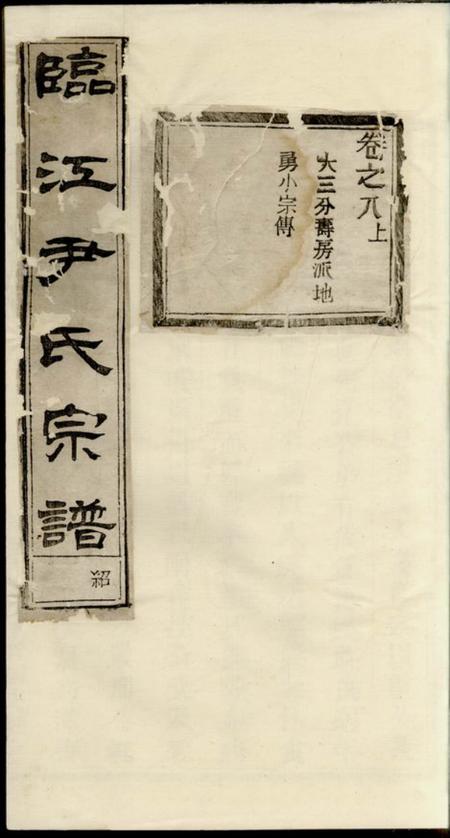 臨江尹氏宗譜
紹
卷之八上
大三分壽房派地
勇小宗傳